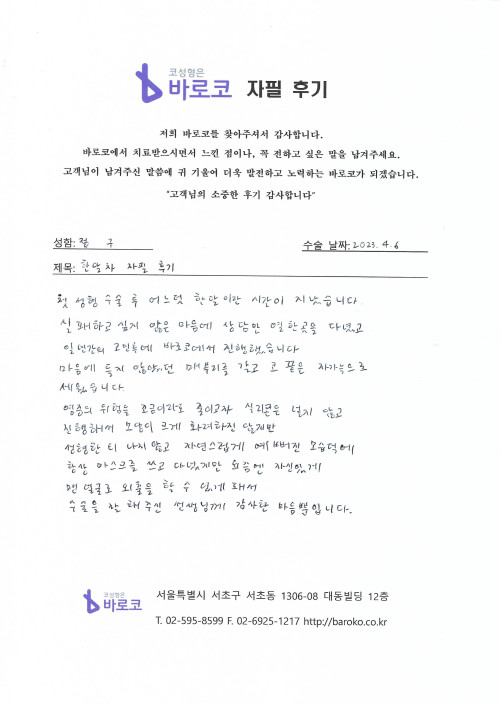 코성형은
바로코 자필 후기
저희 바로코를 찾아주셔서 감사합니다.
바로코에서 치료받으시면서 느낀 점이나, 꼭 전하고 싶은 말을 남겨주세요.
고객님이 남겨주신 말씀에 귀 기울여 더욱 발전하고 노력하는 바로코가 되겠습니다.
"고객님의 소중한 후기 감사합니다"
성함: 정 구 수술 날짜: 2023. 4. 6
제목: 한달차 자필 후기
첫 성형 수술 후 어느덧 한달이란 시간이 지났습니다.
실패하고 싶지 않은 마음에 상담만 열한곳을 다녔고
일년간의 고민 끝에 바로코에서 진행했습니다
마음에 들지 않았던 매부리를 갈고 코 끝은 자가늑으로
세웠습니다
염증의 위험을 조금이라도 줄이고자 실리콘은 넣지 않고
진행해서 모양이 크게 화려하진 않지만
성형한 티 나지 않고 자연스럽게 예뻐진 모습덕에
항상 마스크를 쓰고 다녔지만 요즘엔 자신있게
맨 얼굴로 외출을 할 수 있게 돼서
수술을 잘 해주신 선생님께 감사한 마음뿐입니다.
코성형은
바로코
서울특별시 서초구 서초동 1306-08 대동빌딩 12층
T. 02-595-8599 F. 02-6925-1217 http://baroko.co.kr